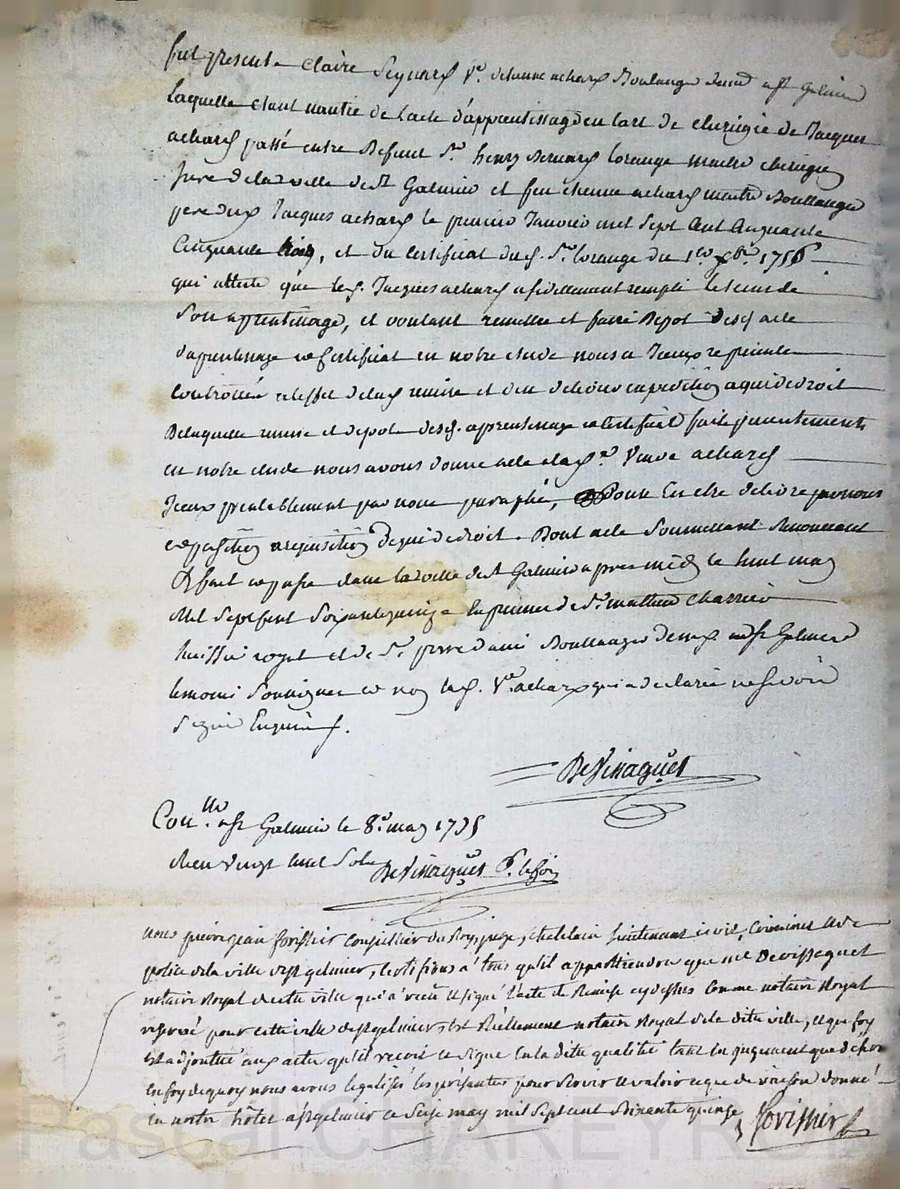 fut presente Claire Seynard Ve. detienne achard Boulanger dud. st Galmier
Laquelle etant nantie de l'acte d'apprentissage en lart de chirurgie de Jacques
achard passé entre Defunt Sr. henry Bernard lorange maitre chirurgien
Juré de la ville de St Galmier et feu etienne achard maitre Boullanger
pere dud. Jacques achard le premier Janvier mil sept Cent Cinquante
Cinquante trois, et du certificat dud. Sr. lorange du 1er. xbre. 1756
qui atteste que led. Jacques achard a fidellement rempli le tems de
Son apprentissage, et voulant remettre et faire Depot desd. acte
d'apprentissage et Certificat en notre etude nous a Iceux representé
Controllés a leffet de lad. remise et den delivrer expedition a qui de droit
De laquelle remise et depot desd. apprentissage et certificat faite presentement
en notre etude nous avons donné acte a lad. Ve. achard
Iceux prealablement par nous paraphé, Pour En etre delivré par nous
expedition a requisition De qui de droit. Dont acte Soumettant Renonceant
Et fait et passé dans la ville de St Galmier apres midy le huit may
Mil Sept Cent Soixante quinze En presence de Sr. mathieu Charrier
huissier royal et de Sr. pierre Boullanger demt. aud. st Galmier
temoins Soussignés et non lad. Ve. achard qui a declaré ne Savoir
Signer Enquis.
DeVinagues
Conlle a st Galmier le 8e. may 1775
Reçu vingt huit Sols DeVinagues
nous pierre jean forissier Conseiller du Roy, juge, chatelain Lieutenant civil, Criminel et de
police de la ville de st galmier, certifions à tous qu'il appartiendra que me
notaire Royal de cette ville qui a reçu et signé l'acte de Remise cy dessus Comme notaire Royal
reservé pour cette ville de st galmier, est Réellement notaire Royal de la dite ville, et que foy
Est adjoutée aux actes qu'il reçoit et signe En la dite qualité tant En jugement que dehors
En foy de quoy nous avons légalisé les présentes pour servir et valoir ce que de raison donné
en notre hôtel a st galmier ce Seize may mil sept cent Soixante quinze
forissier
Pascal CHAREYRON